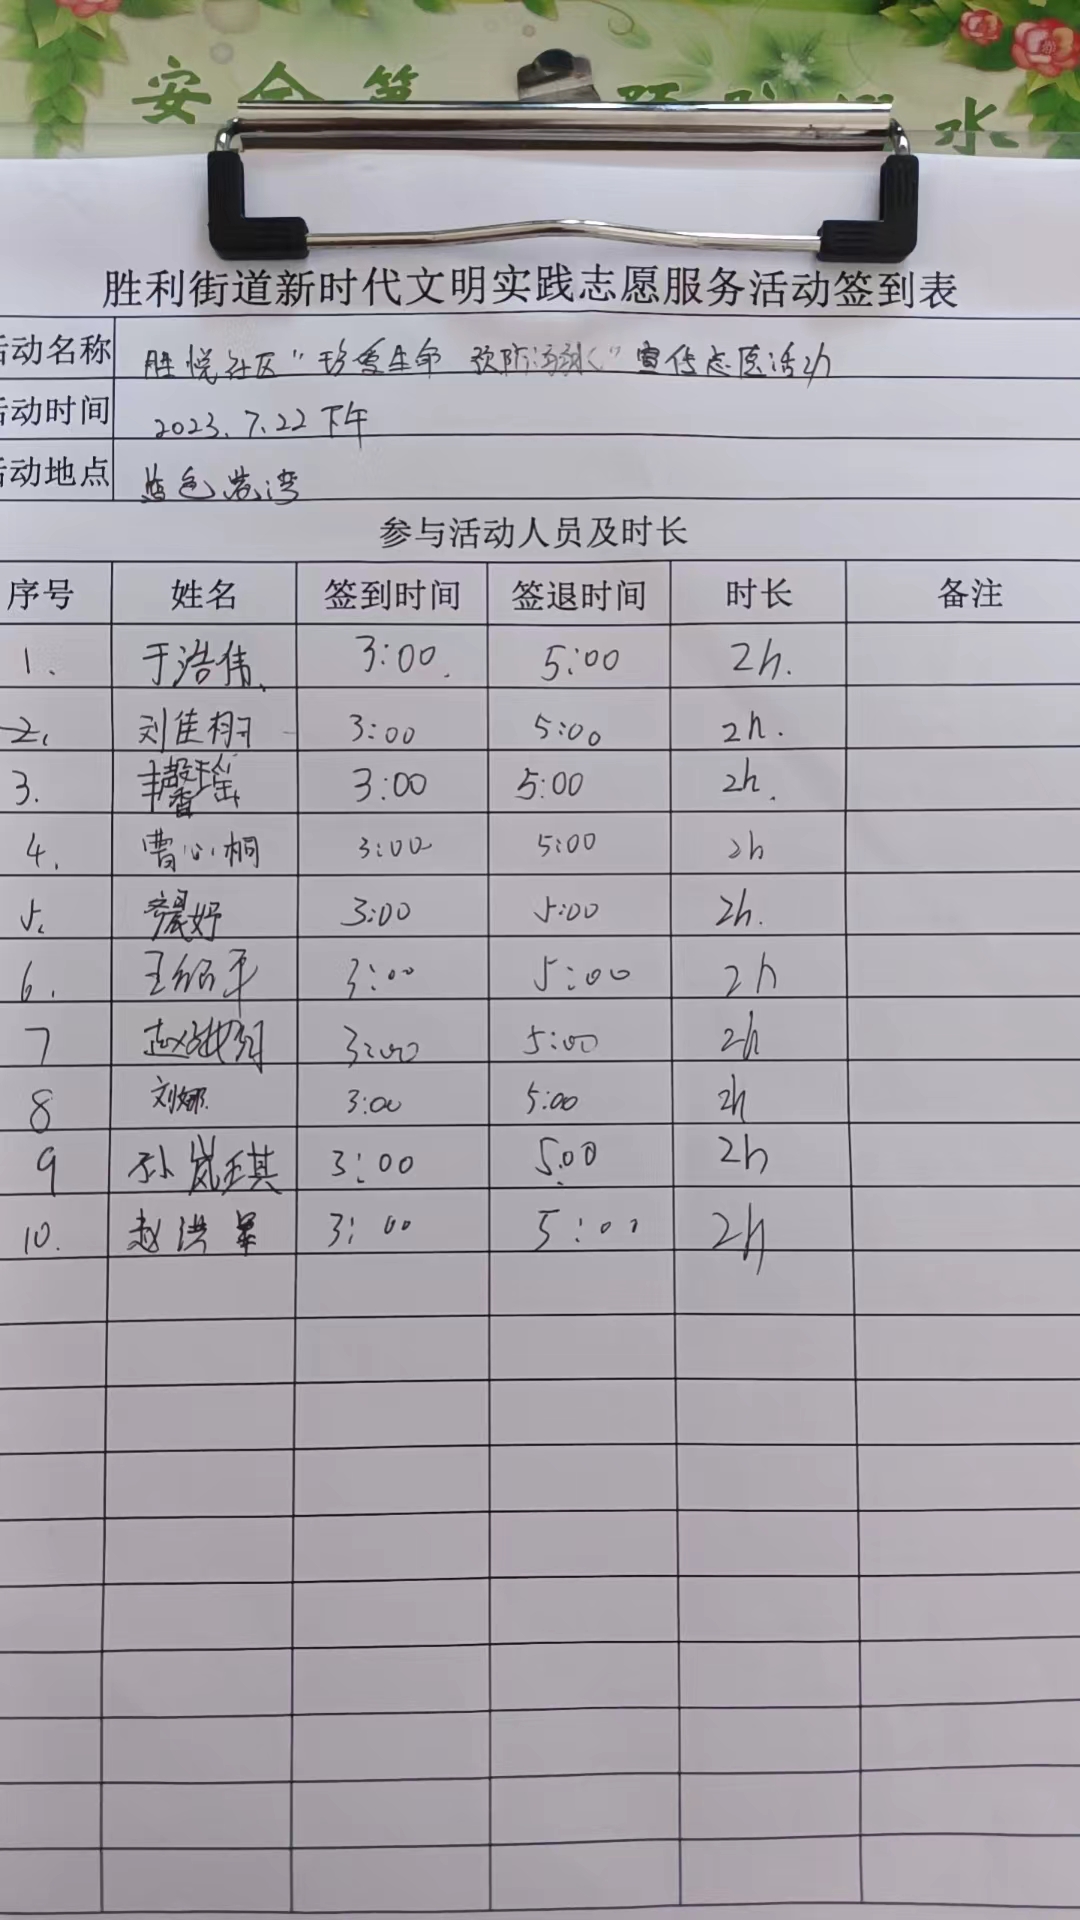 安全第 预防溺水
胜利街道新时代文明实践志愿服务活动签到表
活动名称 胜悦社区"珍爱生命 预防溺水"宣传志愿活动
活动时间 2023.7.22 下午
活动地点 蓝色港湾
参与活动人员及时长
序号 姓名 签到时间 签退时间 时长 备注
1. 于浩伟 3:00 5:00 2h.
2. 刘佳栩 3:00 5:00 2h.
3. 丰馨瑶 3:00 5:00 2h.
4. 曹心桐 3:00 5:00 2h
5. 晨妤 3:00 5:00 2h.
6. 王绍平 3:00 5:00 2h
7 赵 3:00 5:00 2h
8 刘娜 3:00 5:00 2h
9 孙岚琪 3:00 5:00 2h
10. 赵洪 3:00 5:00 2h